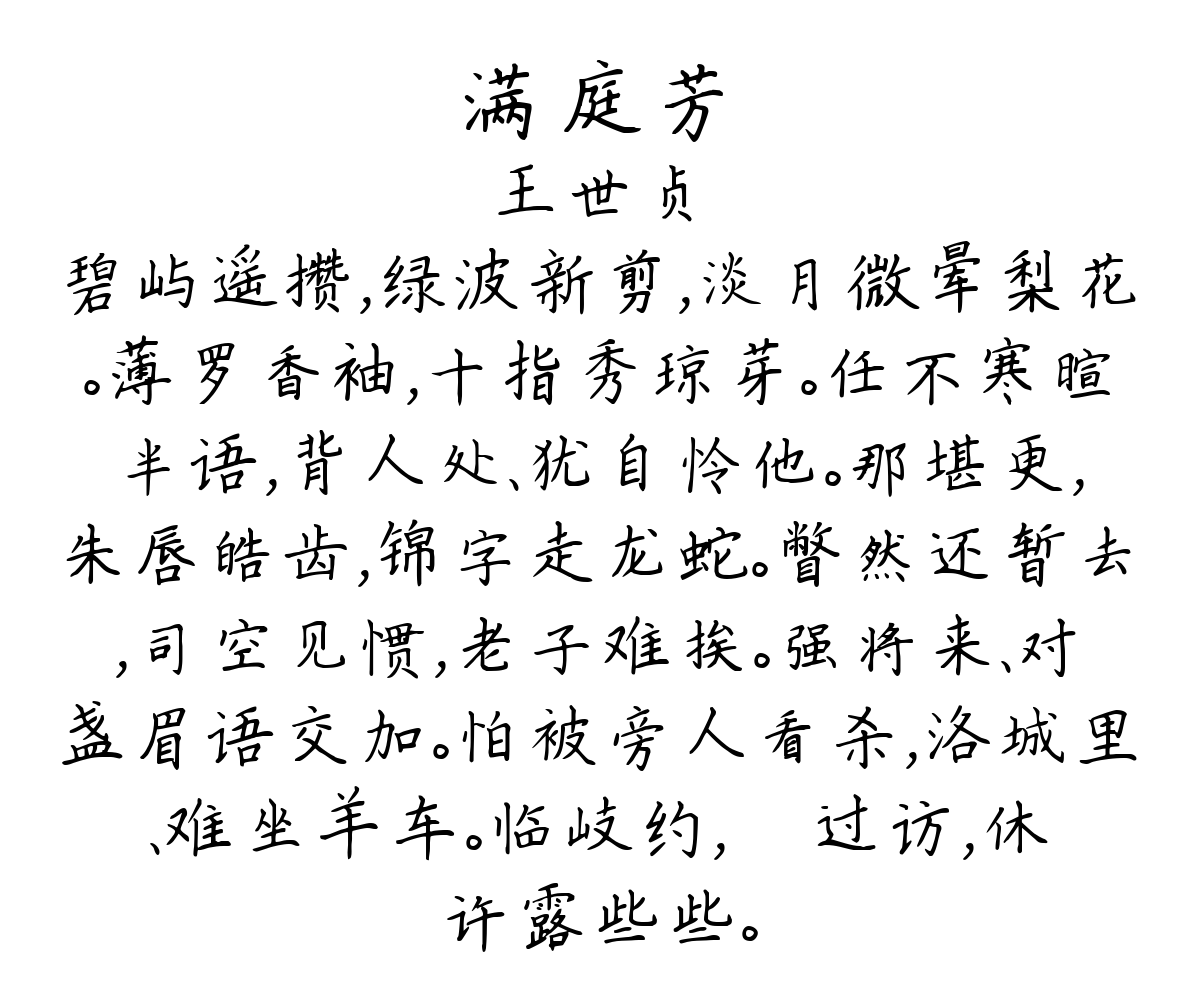 满庭芳
王世贞
碧屿遥攒,绿波新剪,淡月微晕梨花
。薄罗香袖,十指秀琼芽。任不寒暄
半语,背人处、犹自怜他。那堪更,
朱唇皓齿,锦字走龙蛇。瞥然还暂去
,司空见惯,老子难挨。强将来、对
盏眉语交加。怕被旁人看杀,洛城里
、难坐羊车。临岐约, 过访,休
许露些些。